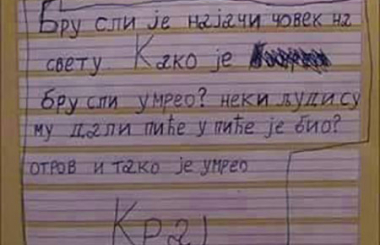 Бру сли је најачи човек на
свету. Како је
бру сли умрео? неки људи су
му дали пиће у пиће је био?
отров и тако је умрео
Крај